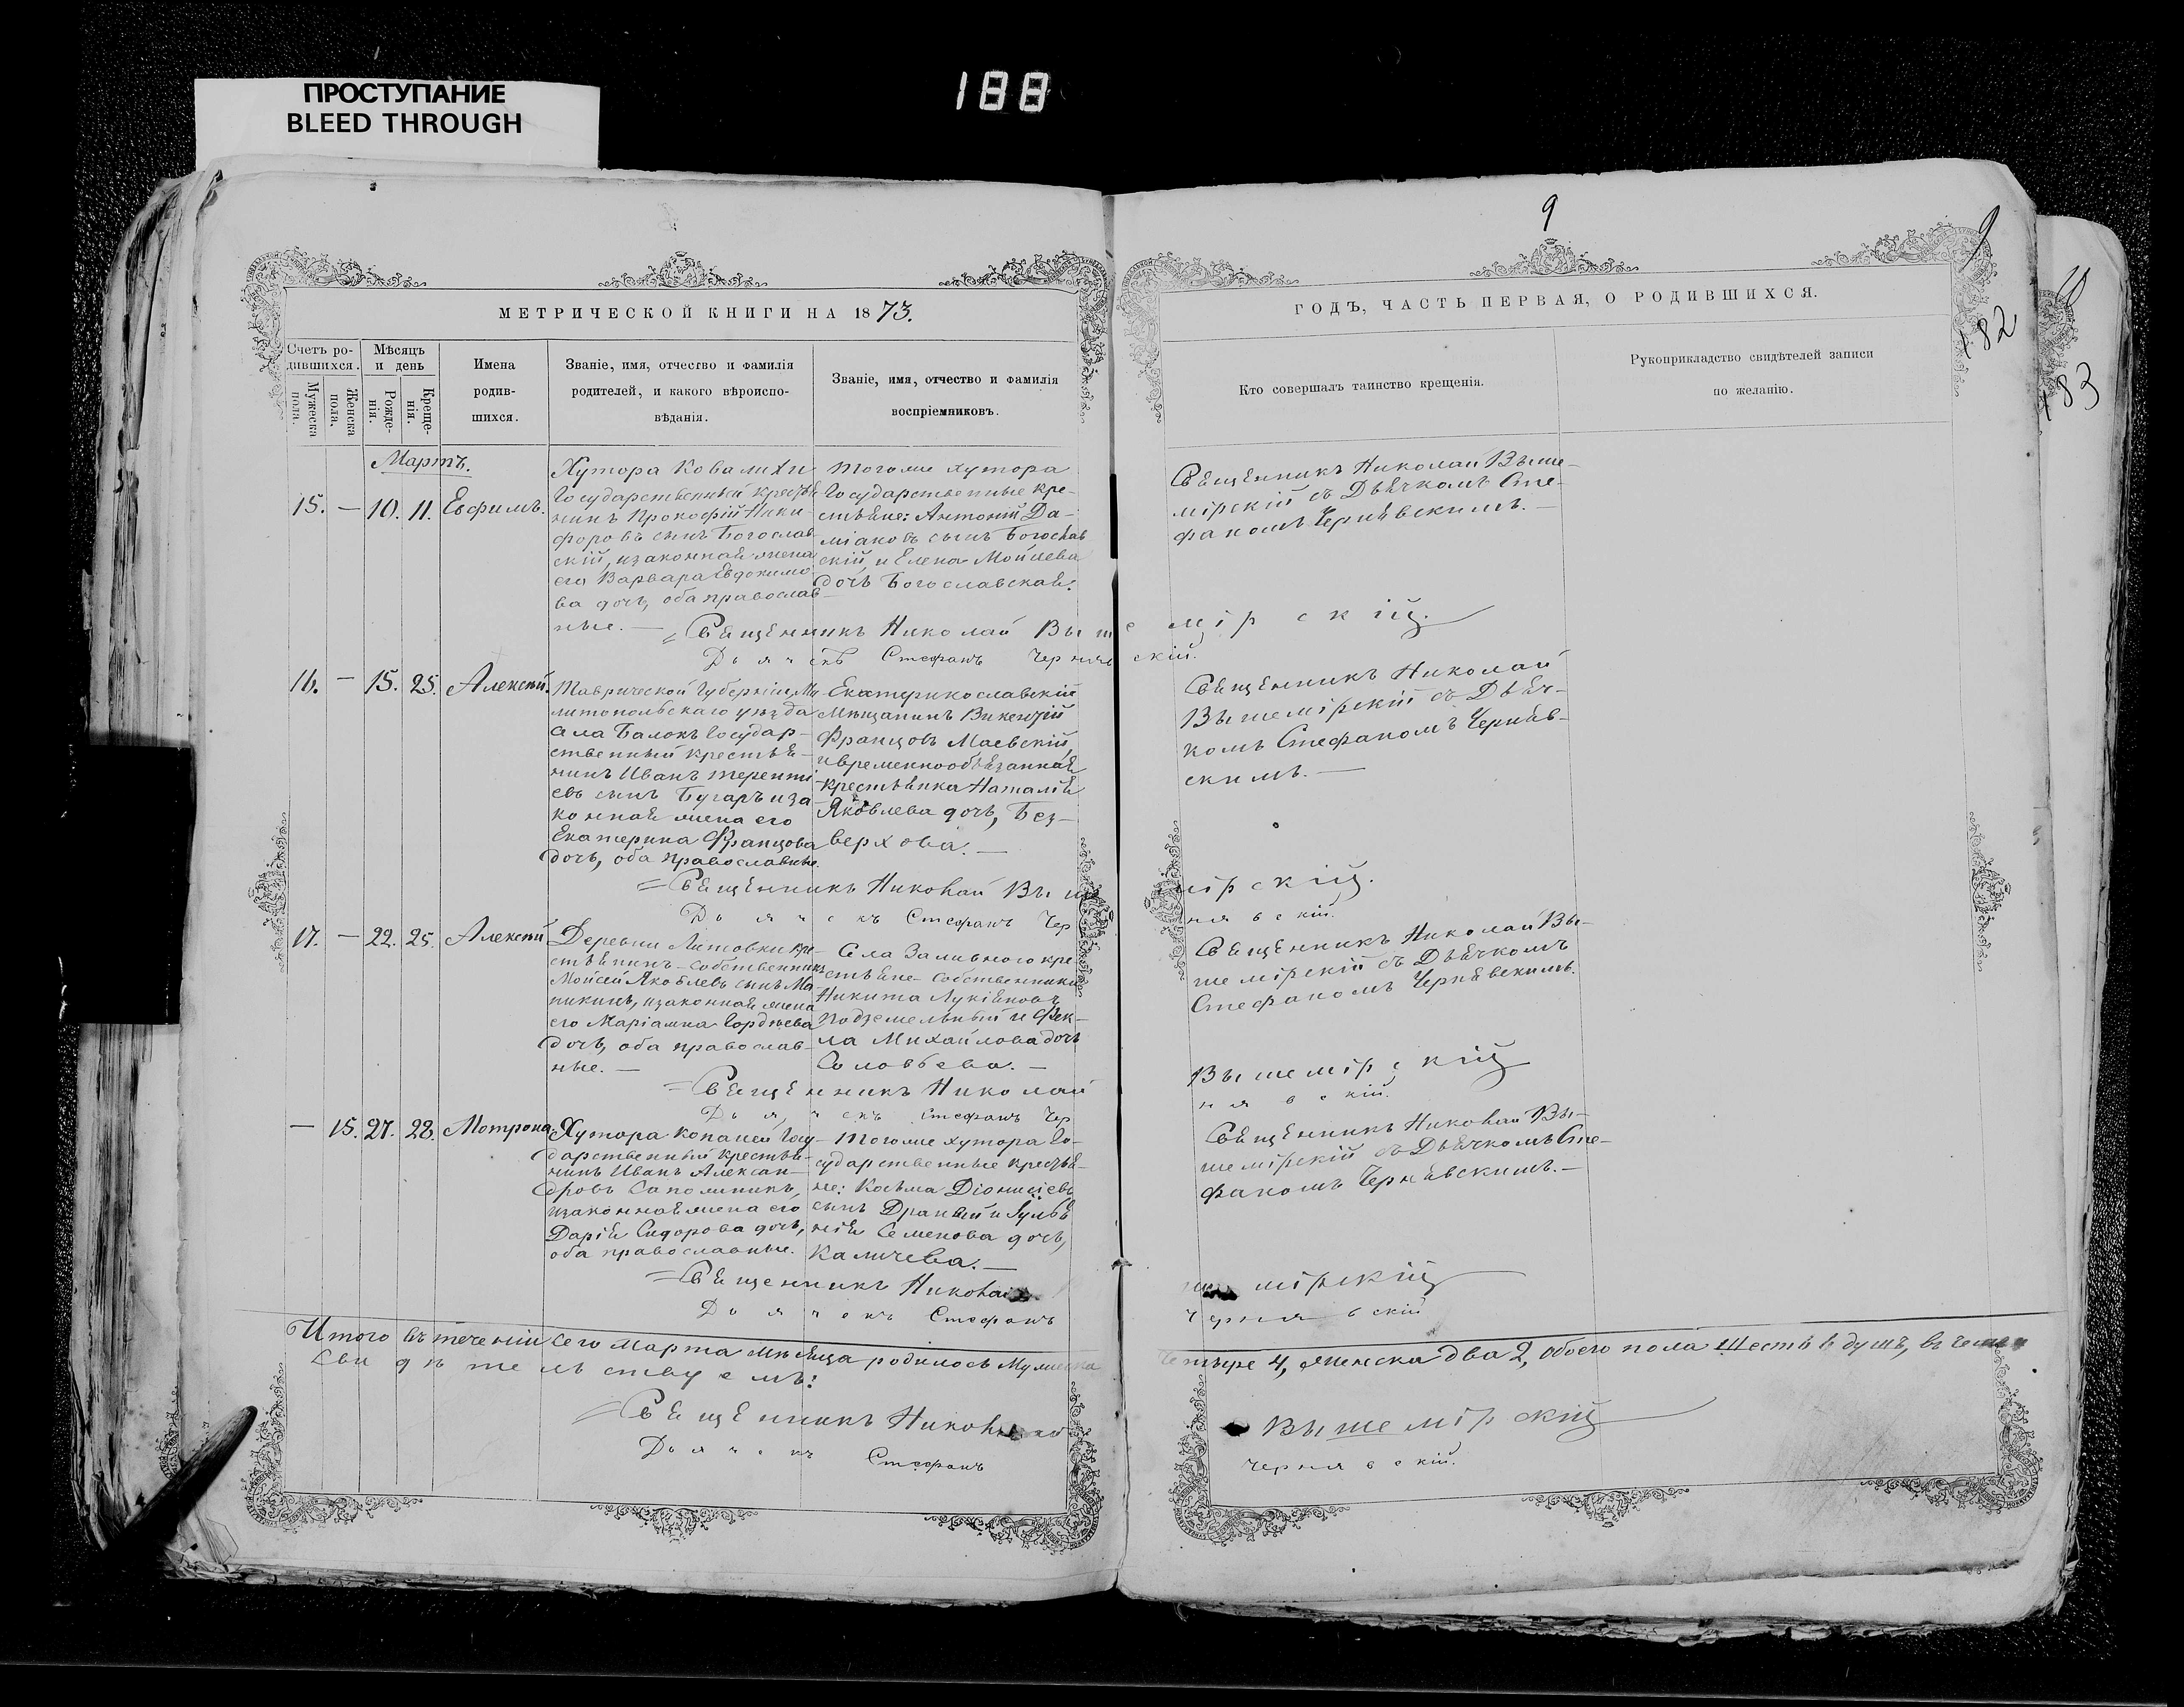 188
ПРОСТУПАНИЕ
BLEED THROUGH
9
9
10
182
183
МЕТРИЧЕСКОЙ КНИГИ НА 1873.
ГОДЪ, ЧАСТЬ ПЕРВАЯ, О РОДИВШИХСЯ.
Счетъ ро-
дившихся.
Мужеска
пола.
Женска
пола.
Мѣсяцъ
и день
Рожде-
нія.
Креще-
нія.
Имена
родив-
шихся.
Званіе, имя, отчество и фамилія
родителей, и какого вѣроиспо-
вѣданія.
Званіе, имя, отчество и фамилія
воспріемниковъ.
Кто совершалъ таинство крещенія.
Рукоприкладство свидѣтелей записи
по желанію.
Мартъ.
15. — 10. 11. Евфимъ.
Хутора Ковалихи
Государственный крестья
нинъ Прокофій Ники-
форовъ сынъ Богослав
скій, изаконная жена
его Варвара Евдокимо
ва дочь, оба православ
ные. —
Тогоже хутора
Государственные кре-
стьяне: Антоній Да-
міановъ сынъ Богослав
скій, и Елена Мойсеева
дочь Богославская.
Священникъ Николай Выше-
мірскій съ Дьячкомъ Сте-
фаномъ Чернявскимъ. —
Священникъ Николай Вышемірскій.
Дьячекъ Стефанъ Чернявскій.
16. — 15. 25. Алексѣй.
Таврической Губерніи Ме
литопольскаго уѣзда
села Балокъ Государ-
ственный крестья-
нинъ Иванъ Теренті
евъ сынъ Бугаръ иза
конная жена его
Екатерина Францова
дочь, оба православные.
Екатеринославскій
Мѣщанинъ Викентій
Францовъ Маевскій,
и временнообязанная
крестьянка Наталія
Яковлева дочь, Без-
верхова. —
Священникъ Николай
Вышемірскій съ Дьяч-
комъ Стефаномъ Черняв-
скимъ. —
Священникъ Николай Вышемірскій.
Дьячекъ Стефанъ Чернявскій.
17. — 22. 25. Алексѣй
Деревни Литовки кре-
стьянинъ-собственникъ
Мойсей Яковлевъ сынъ Ма-
никинъ, изаконная жена
его Маріамна Гордѣева
дочь, оба православ-
ные. —
Села Заливного кре-
стьяне-собственники
Никита Лукіяновъ
Подземельный и Фек-
ла Михайлова дочь
Соловьева. —
Священникъ Николай Вы-
шемірскій съ Дьячкомъ
Стефаномъ Чернявскимъ.
Священникъ Николай Вышемірскій
Дьячекъ Стефанъ Чернявскій.
— 15. 27. 28. Мотрона.
Хутора Копаней Госу-
дарственный крестья-
нинъ Иванъ Алексан-
дровъ Саполиникъ,
изаконная жена его
Дарія Сидорова дочь,
оба православные.
Тогоже хутора Го-
сударственные крестья-
не: Косьма Діонисіевъ
сынъ Драный и Гулья
нія Семенова дочь,
Каличева. —
Священникъ Николай Вы-
шемірскій съ Дьячкомъ Сте-
фаномъ Чернявскимъ. —
Священникъ Николай Вышемірскій
Дьячекъ Стефанъ Чернявскій
Итого въ теченіи сего Марта мѣсяца родилось Мужеска четыре 4, Женска два 2, обоего пола Шесть 6 душъ, въ чемъ и
Свидѣтельствуемъ:
Священникъ Николай Вышемірскій
Дьячекъ Стефанъ Чернявскій.